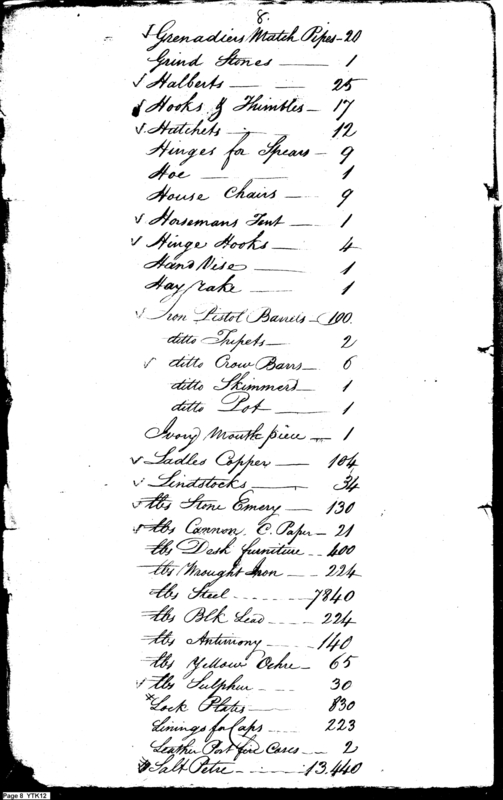 8.
√ Grenadiers Match Pipes - 20
Grind Stones — 1
√ Halberts — — 25
√ Hooks & Thimbles — 17
√ Hatchets — 12
Hinges for Spears — 9
Hoe — — 1
House Chairs — 9
√ Horsemans Tent — 1
√ Hinge Hooks — 4
Hand Vise — 1
Hay rake — 1
√ Iron Pistol Barrels — 100.
ditto Tripets — 2
√ ditto Crow Barrs — 6
ditto Skimmers — 1
ditto Pot — 1
Ivory Mouth piece — 1
√ Ladles Copper — 104
√ Lindstocks — 34
√ lbs Stone Emery — 130
√ lbs Cannon C. Paper — 21
lbs Desk furniture - - 400
lbs Wrought Iron — 224
lbs Steel - - - - - 7840
lbs Blk Lead - - - - 224
lbs Antimony - - - - 140
lbs Yellow Ochre - - 65
√ lbs Sulphur - - - 30
* Lock Plates - - - 830
Linings for Caps - - - 223
Leather Port fire Cases - - - 2
Salt Petre - - - - - 13,440
Page 8 YTK12